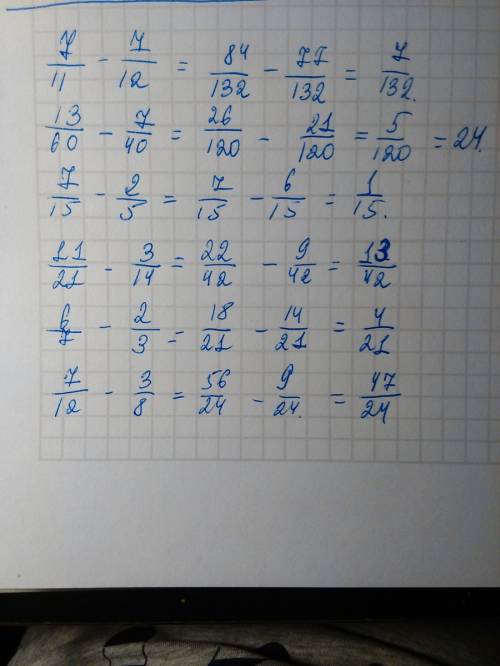 7/11 - 7/12 = 84/132 - 77/132 = 7/132.
13/60 - 7/40 = 26/120 - 21/120 = 5/120 = 24.
7/15 - 2/5 = 7/15 - 6/15 = 1/15.
11/21 - 3/14 = 22/42 - 9/42 = 13/42
6/7 - 2/3 = 18/21 - 14/21 = 4/21
7/12 - 3/8 = 56/24 - 9/24. = 47/24